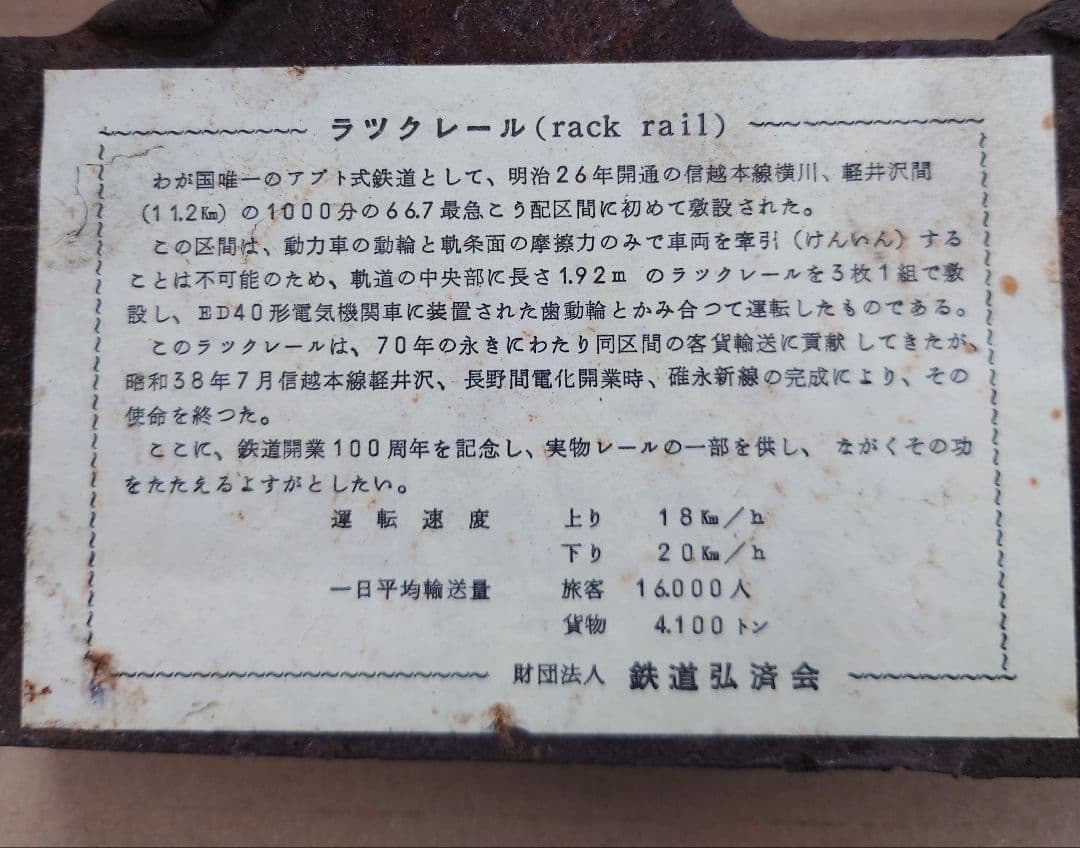 ラツクレール(rack rail)
わが国唯一のアプト式鉄道として、明治26年開通の信越本線横川、軽井沢間
(11.2㎞)の1000分の66.7最急こう配区間に初めて敷設された。
この区間は、動力車の動輪と軌条面の摩擦力のみで車両を牽引(けんいん)する
ことは不可能のため、軌道の中央部に長さ1.92mのラツクレールを3枚1組で敷
設し、ED40形電気機関車に装置された歯動輪とかみ合つて運転したものである。
このラツクレールは、70年の永きにわたり同区間の客貨輸送に貢献してきたが、
昭和38年7月信越本線軽井沢、長野間電化開業時、碓永新線の完成により、その
使命を終つた。
ここに、鉄道開業100周年を記念し、実物レールの一部を供し、ながくその功
をたたえるよすがとしたい。
運転速度 上り 18㎞/h
下り 20㎞/h
一日平均輸送量 旅客 16.000人
貨物 4.100トン
財団法人 鉄道弘済会